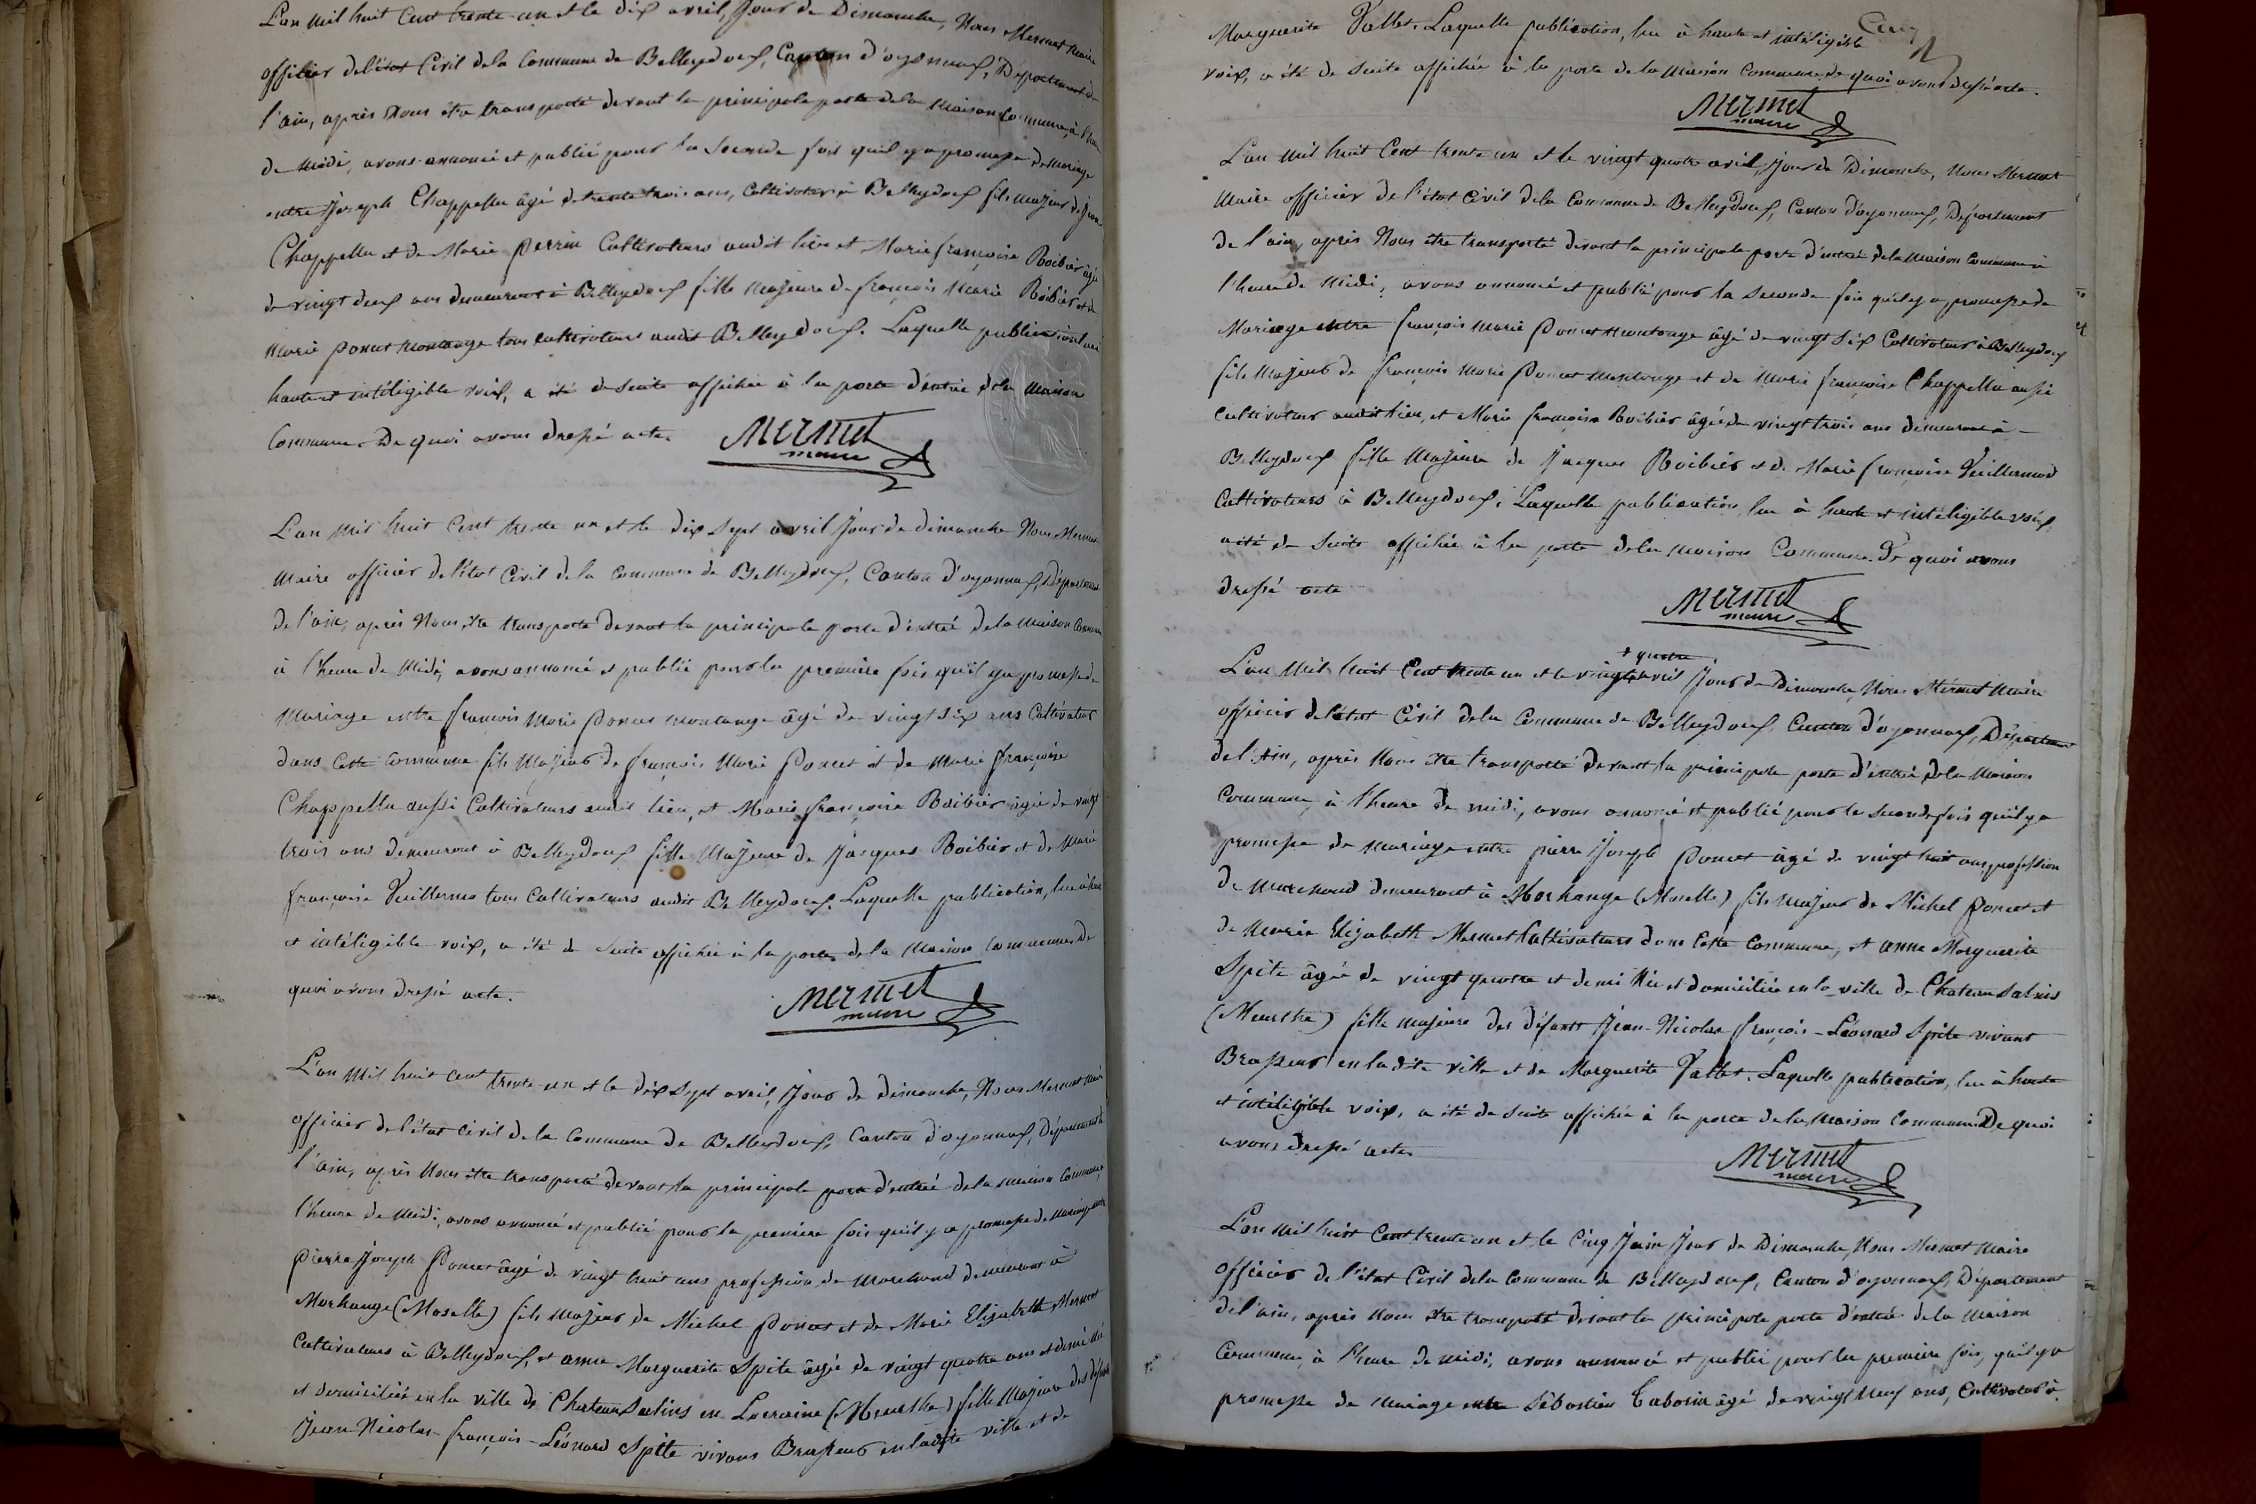 L'an mil huit Cent trente un et le dix avril, Jour de Dimanche, Nous Mermet Maire
officier de l'état Civil de la Commune de Belleydoux, Canton d'oyonnax, Département de
l'ain, après Nous être transporté devant la principale porte de la Maison Commune, à l'heure
de Midi, avons annoncé et publié pour la Seconde fois qu'il y a promesse de Mariage
entre Joseph Chappellu âgé de trente trois ans, Cultivateur à Belleydoux fils Majeur de Jean
Chappellu et de Marie Perrin Cultivateurs audit lieu et Marie françoise Boibier âgée
de vingt deux ans demeurant à Belleydoux fille Majeure de françois Marie Boibier et de
Marie Poncet Montange tous cultivateurs audit Belleydoux. Laquelle publication lue
haute et intéligible voix, a été de Suite affichée à la porte d'entrée de la Maison
Commune. De quoi avons dressé acte.
Mermet
maire
L'an Mil huit Cent trente un et le dix Sept avril Jour de dimanche Nous Mermet
Maire officier de l'état Civil de la Commune de Belleydoux, Canton d'oyonnax, Département
de l'ain, après Nous être transporté devant la principale porte d'entrée de la Maison Commune
à l'heure de Midi, avons annoncé et publié pour la première fois qu'il y a promesse de
Mariage entre françois Marie Poncet Montange âgé de vingt Six ans Cultivateur
dans Cette Commune fils Majeur de françois Marie Poncet et de Marie françoise
Chappellu aussi Cultivateurs audit lieu, et Marie françoise Boibier âgée de vingt
trois ans demeurant à Belleydoux fille Majeure de Jacques Boibier et de Marie
françoise Vuillermoz tous Cultivateurs audit Belleydoux. Laquelle publication, lue à haute
et intéligible voix, a été de Suite affichée à la porte de la Maison Commune. De
quoi avons dressé acte.
Mermet
maire
L'an Mil huit cent trente un et le dix Sept avril, Jour de Dimanche, Nous Mermet Maire
officier de l'état civil de la Commune de Belleydoux, Canton d'oyonnax, Département de
l'ain, après Nous être transporté devant la principale porte d'entrée de la maison Commune,
l'heure de Midi, avons annoncé et publié pour la première fois qu'il y a promesse de Mariage entre
Pierre Joseph Poncet âgé de vingt huit ans profession de Marchand demeurant à
Morhange (Moselle) fils Majeur de Michel Poncet et de Marie Elizabeth Mermet
Cultivateurs à Belleydoux, et anne Marguerite Spite âgée de vingt quatre ans et demi Née
et domiciliée en la ville de Chateau Salins en Lorraine (Meurthe) fille Majeure des défunts
Jean Nicolas françois-Léonard Spite vivant Brasseur en ladite ville et de
Cinq
Marguerite Vallet. Laquelle publication, lue à haute et intéligible
voix, a été de Suite affichée à la porte de la Maison Commune de quoi avons dressé acte.
Mermet
maire
L'an Mil huit Cent trente un et le vingt quatre avril, Jour de Dimanche, Nous Mermet
Maire officier de l'état Civil de la Commune de Belleydoux, Canton d'oyonnax, Département
de l'ain, après Nous être transporté devant la principale porte d'entrée de la Maison Commune à
l'heure de Midi, avons annoncé et publié pour la Seconde fois qu'il y a promesse de
Mariage entre françois Marie Poncet Montange âgé de vingt Six Cultivateur à Belleydoux
fils Majeur de françois Marie Poncet Montange et de Marie françoise Chappellu aussi
Cultivateurs audit lieu, et Marie françoise Boibier âgée de vingt trois ans demeurant à -
Belleydoux fille Majeure de Jacques Boibier et de Marie françoise Vuillermoz
Cultivateurs à Belleydoux. Laquelle publication, lue à haute et intéligible voix,
a été de Suite affichée à la porte de la Maison Commune. De quoi avons
dressé acte
Mermet
maire
+ quatre
L'an Mil huit Cent trente un et le vingt + avril Jour de Dimanche, Nous Mermet Maire
officier de l'état Civil de la Commune de Belleydoux, Canton d'oyonnax, Département
de l'Ain, après Nous être transporté devant la principale porte d'entrée de la Maison
Commune, à l'heure de midi, avons annoncé et publié pour la Seconde fois qu'il y a
promesse de Mariage entre pierre Joseph Poncet âgé de vingt huit ans, profession
de Marchand demeurant à Morhange (Moselle) fils Majeur de Michel Poncet et
de Marie Elizabeth Mermet Cultivateurs dans Cette Commune, et anne Marguerite
Spite âgée de vingt quatre et demi Née et domiciliée en la ville de Chateau Salins
(Meurthe) fille majeure des défunts Jean-Nicolas françois-Léonard Spite vivant
Brasseur en ladite ville et de Marguerite Vallet. Laquelle publication, lue à haute
et intéligible voix, a été de Suite affichée à la porte de la Maison Commune De quoi
avons dressé acte.
Mermet
maire
L'an Mil huit Cent trente un et le Cinq Juin Jour de Dimanche, Nous Mermet Maire
officier de l'état Civil de la Commune de Belleydoux, Canton d'oyonnax, Département
de l'ain, après Nous être transporté devant la principale porte d'entrée de la Maison
Commune, à l'heure de midi, avons annoncé et publié pour la première fois, qu'il y a
promesse de Mariage entre Sébastien Tabourin âgé de vingt Neuf ans, Cultivateur à